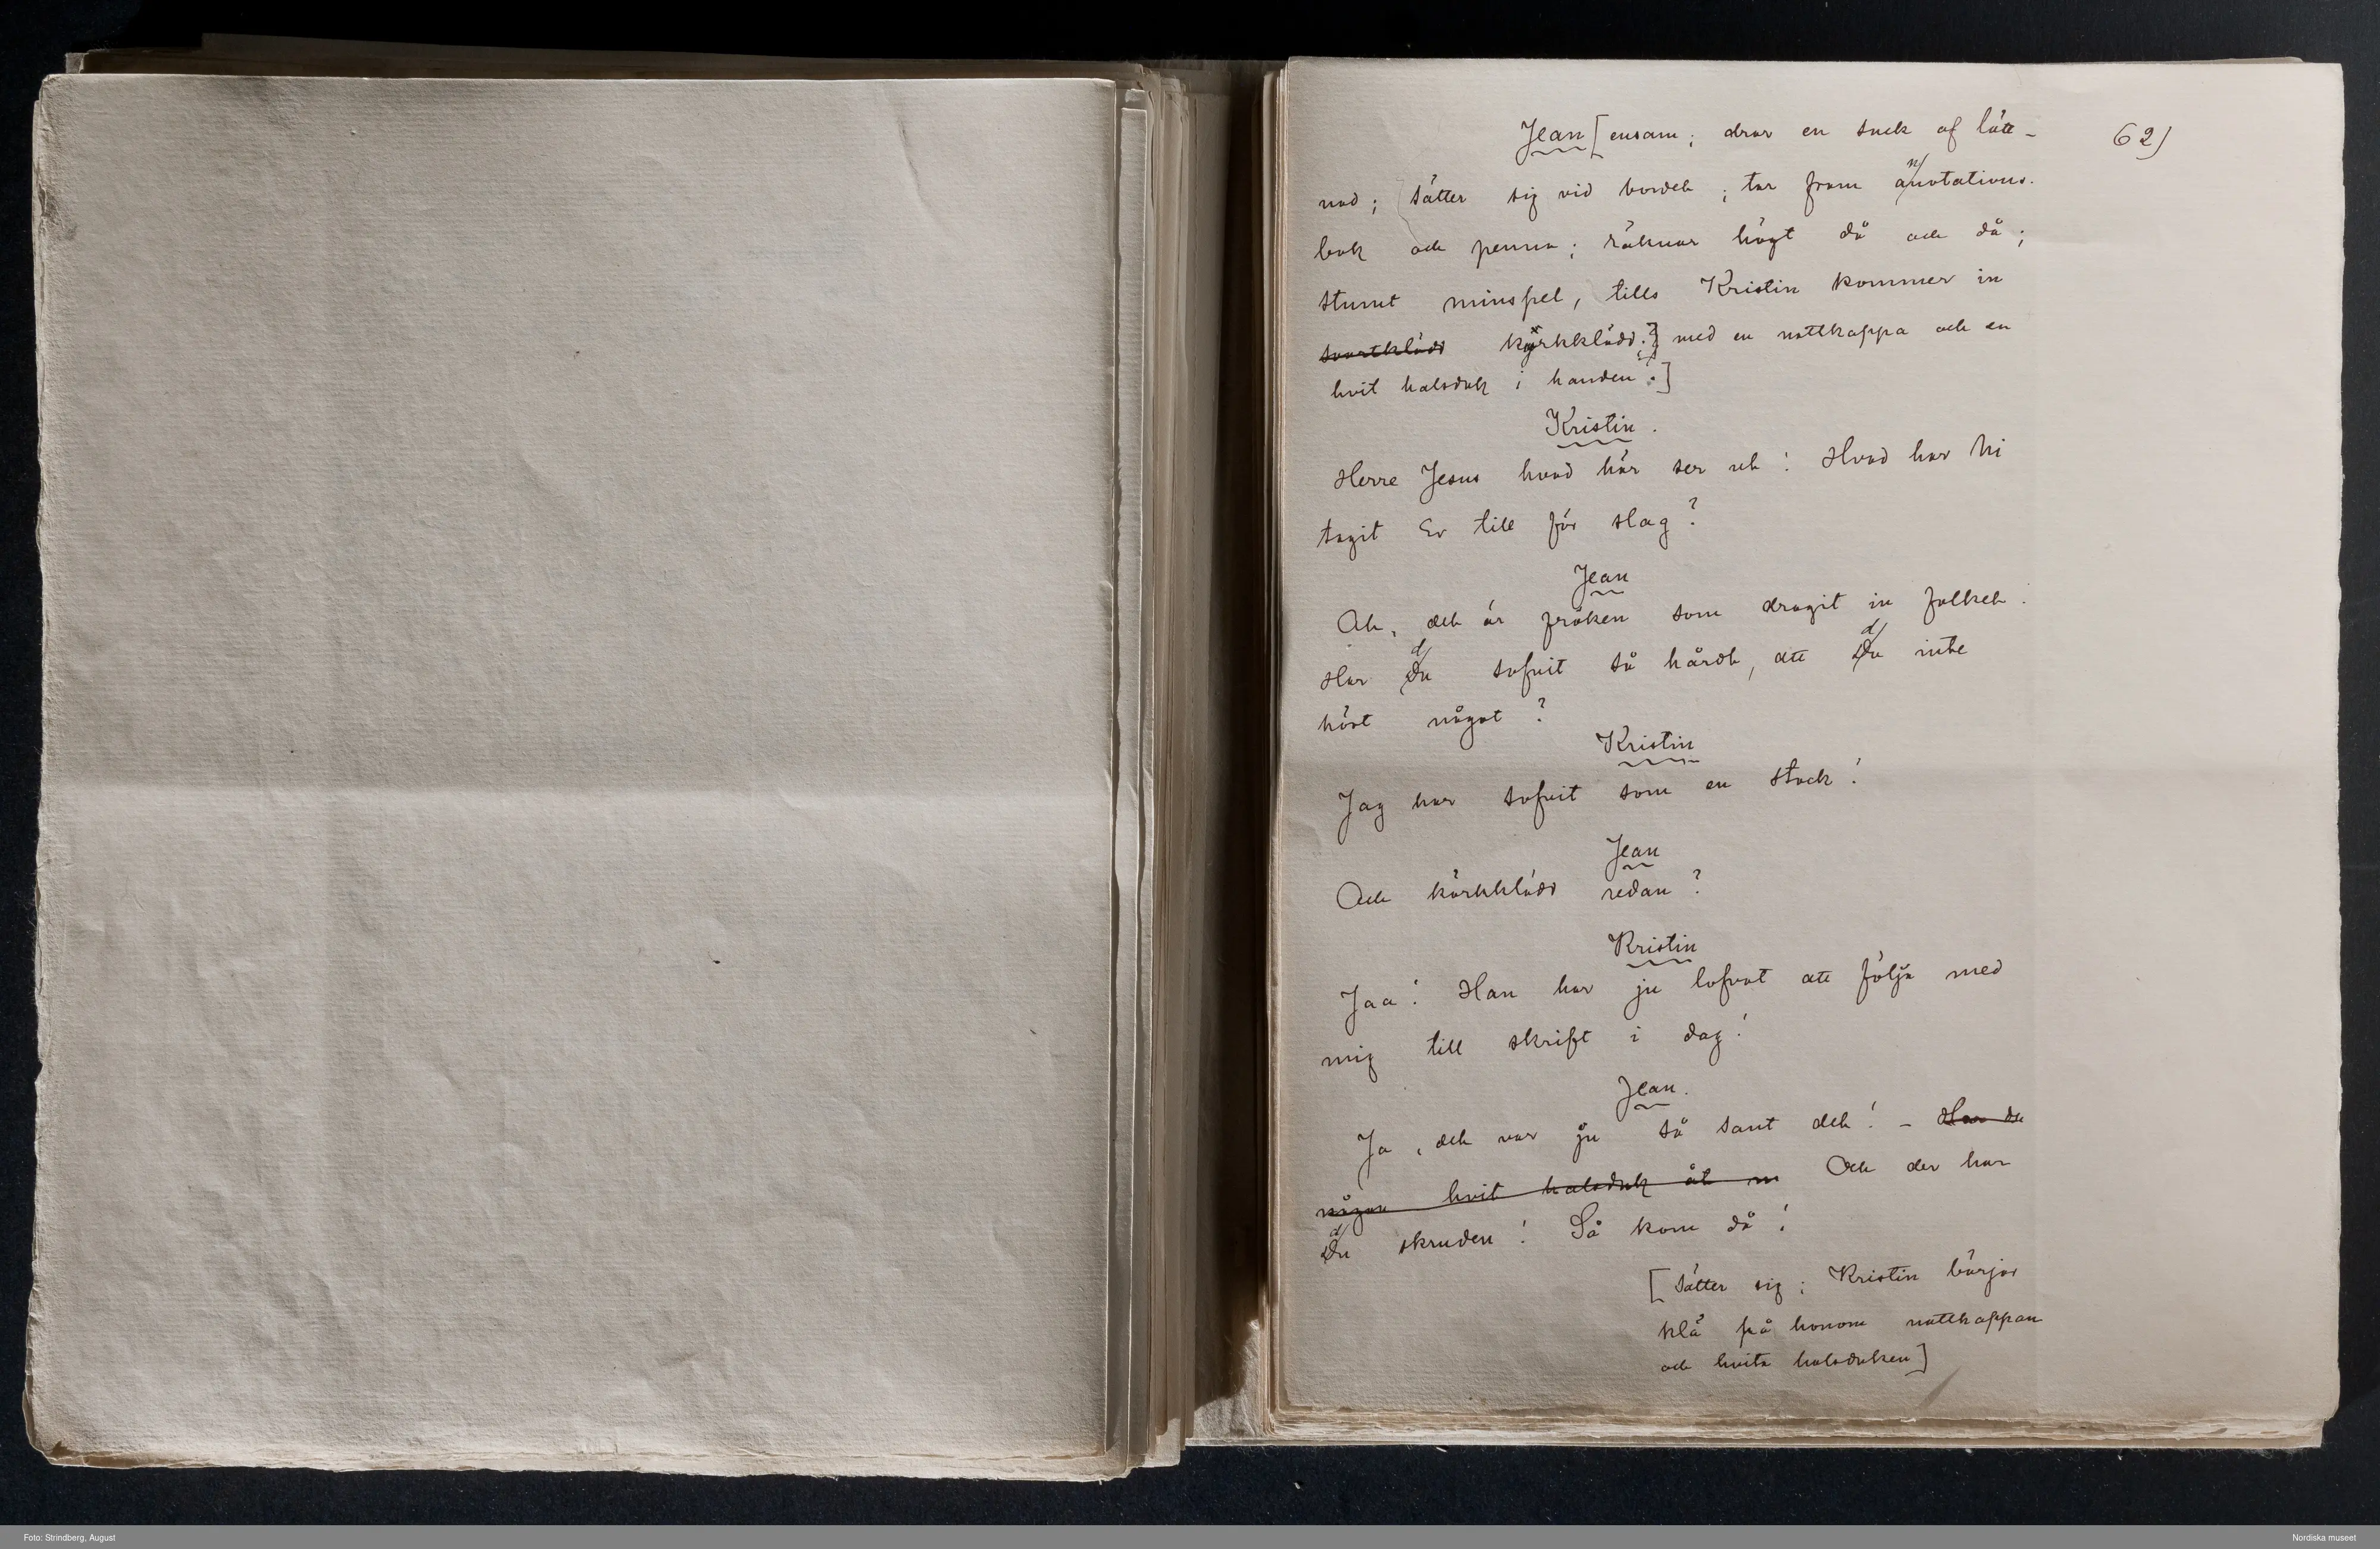 Jean [ensam; drar en suck af lätt- 62)
nad; sätter sig vid bordet; tar fram annotations-
bok och penna; räknar högt då och då;
stumt minspel, tills Kristin kommer in
svartklädd kyrkklädd.] med en nattkappa och en
hvit halsduk i handen.]
Kristin.
Herre Jesus hvad här ser ut! Hvad har Ni
tagit Er till för slag?
Jean
Ah, det är fröken som dragit in folket.
Har du sofvit så hårdt, att du inte
hört något?
Kristin
Jag har sofvit som en stock!
Jean
Och kyrkklädd redan?
Kristin
Jaa! Han har ju lofvat att följa med
mig till skrift i dag!
Jean.
Ja, det var ju så sant det! – Har du
någon hvit halsduk åt m Och der har
du skruden! Så kom då!
[Sätter sig; Kristin börjar
klä på honom nattkappan
och hvita halsduken]
Foto: Strindberg, August
Nordiska museet